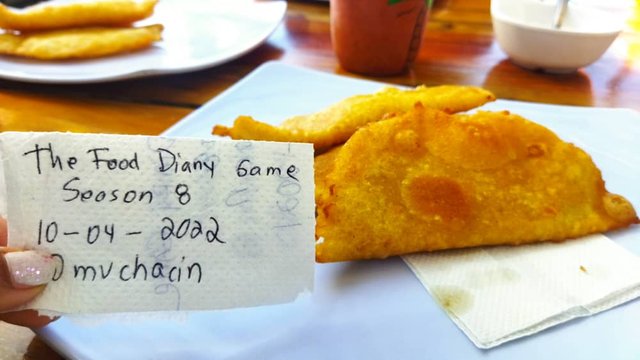 The Food Diany Game
Seoson 8
10-04-2022
@mvchacin